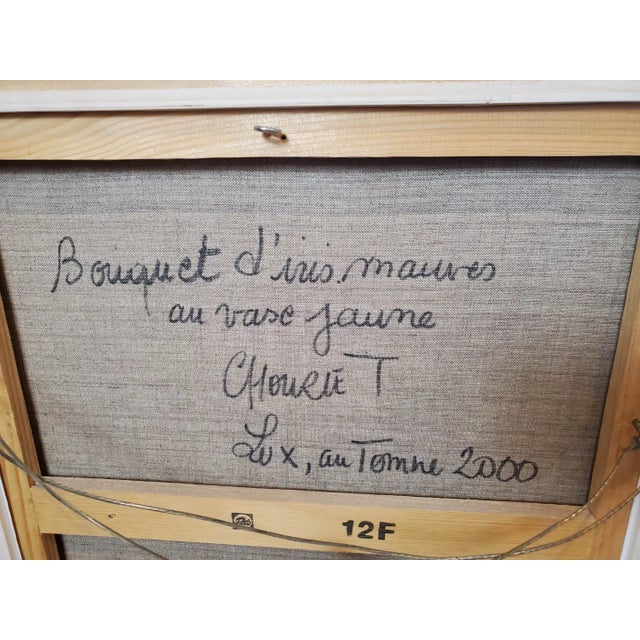 Bouquet d'iris mauves
au vase jaune
CHOURIE T
Lux, autTomne 2000
12F